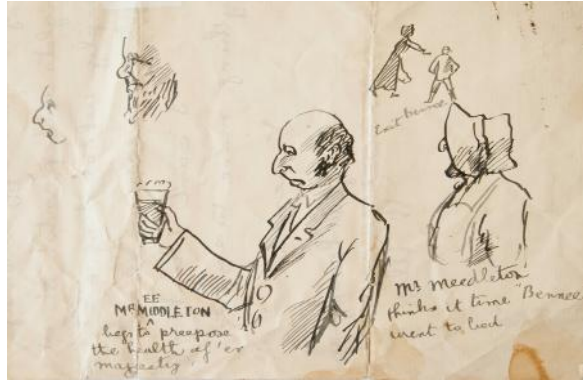 Exit Bennee
EE
MR MIDDLETON
^
begs to preepose
the health of 'er
majesty
Mrs Meedleton
thinks it time "Bennee
went to bed